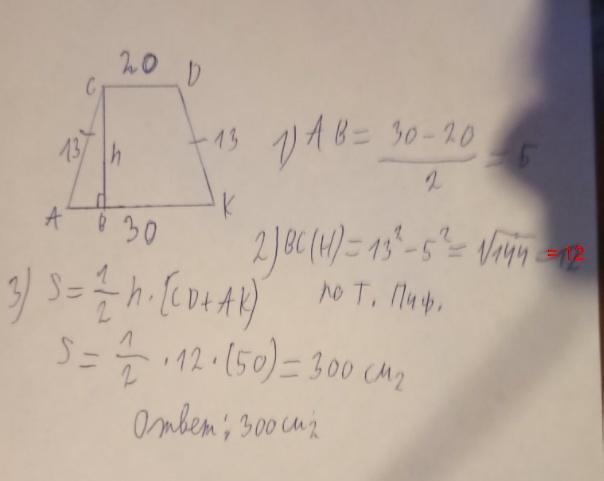 20
C D
13 h 13
A B K
30
1) AB = 30-20 / 2 = 5
2) BC(H) = 13² - 5² = √144 = 12
по Т. Пиф.
3) S = 1/2 h · (CD + AK)
S = 1/2 · 12 · (50) = 300 см2
Ответ: 300 см2